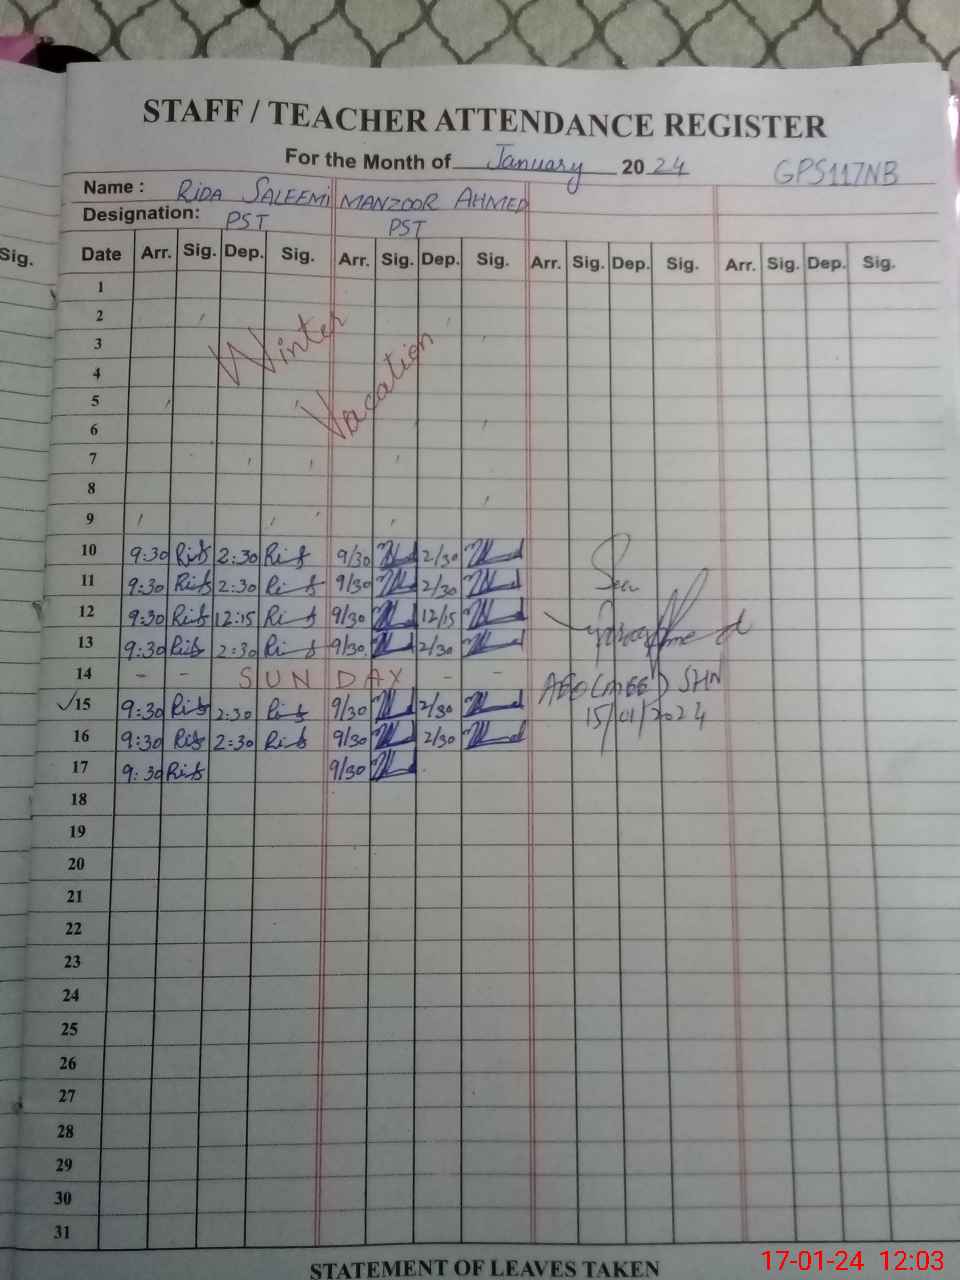 STAFF / TEACHER ATTENDANCE REGISTER
For the Month of January 2024 GPS117NB
Name : RIDA SALEEMI MANZOOR AHMED
Designation: PST PST
Sig. Date Arr. Sig. Dep. Sig. Arr. Sig. Dep. Sig. Arr. Sig. Dep. Sig. Arr. Sig. Dep. Sig.
1
2
3
4
5
6
7
8
9
Winter
Vacation
10 9:30 2:30 9/30 2/30
11 9:30 2:30 9/30 2/30
12 9:30 12:15 9/30 12/15
13 9:30 2:30 9/30 2/30
14 - - SUNDAY - -
15 9:30 2:30 9/30 2/30
16 9:30 2:30 9/30 2/30
17 9:30 9/30
Seen
AEO (mee) SHN
15/01/2024
18
19
20
21
22
23
24
25
26
27
28
29
30
31
STATEMENT OF LEAVES TAKEN
17-01-24 12:03